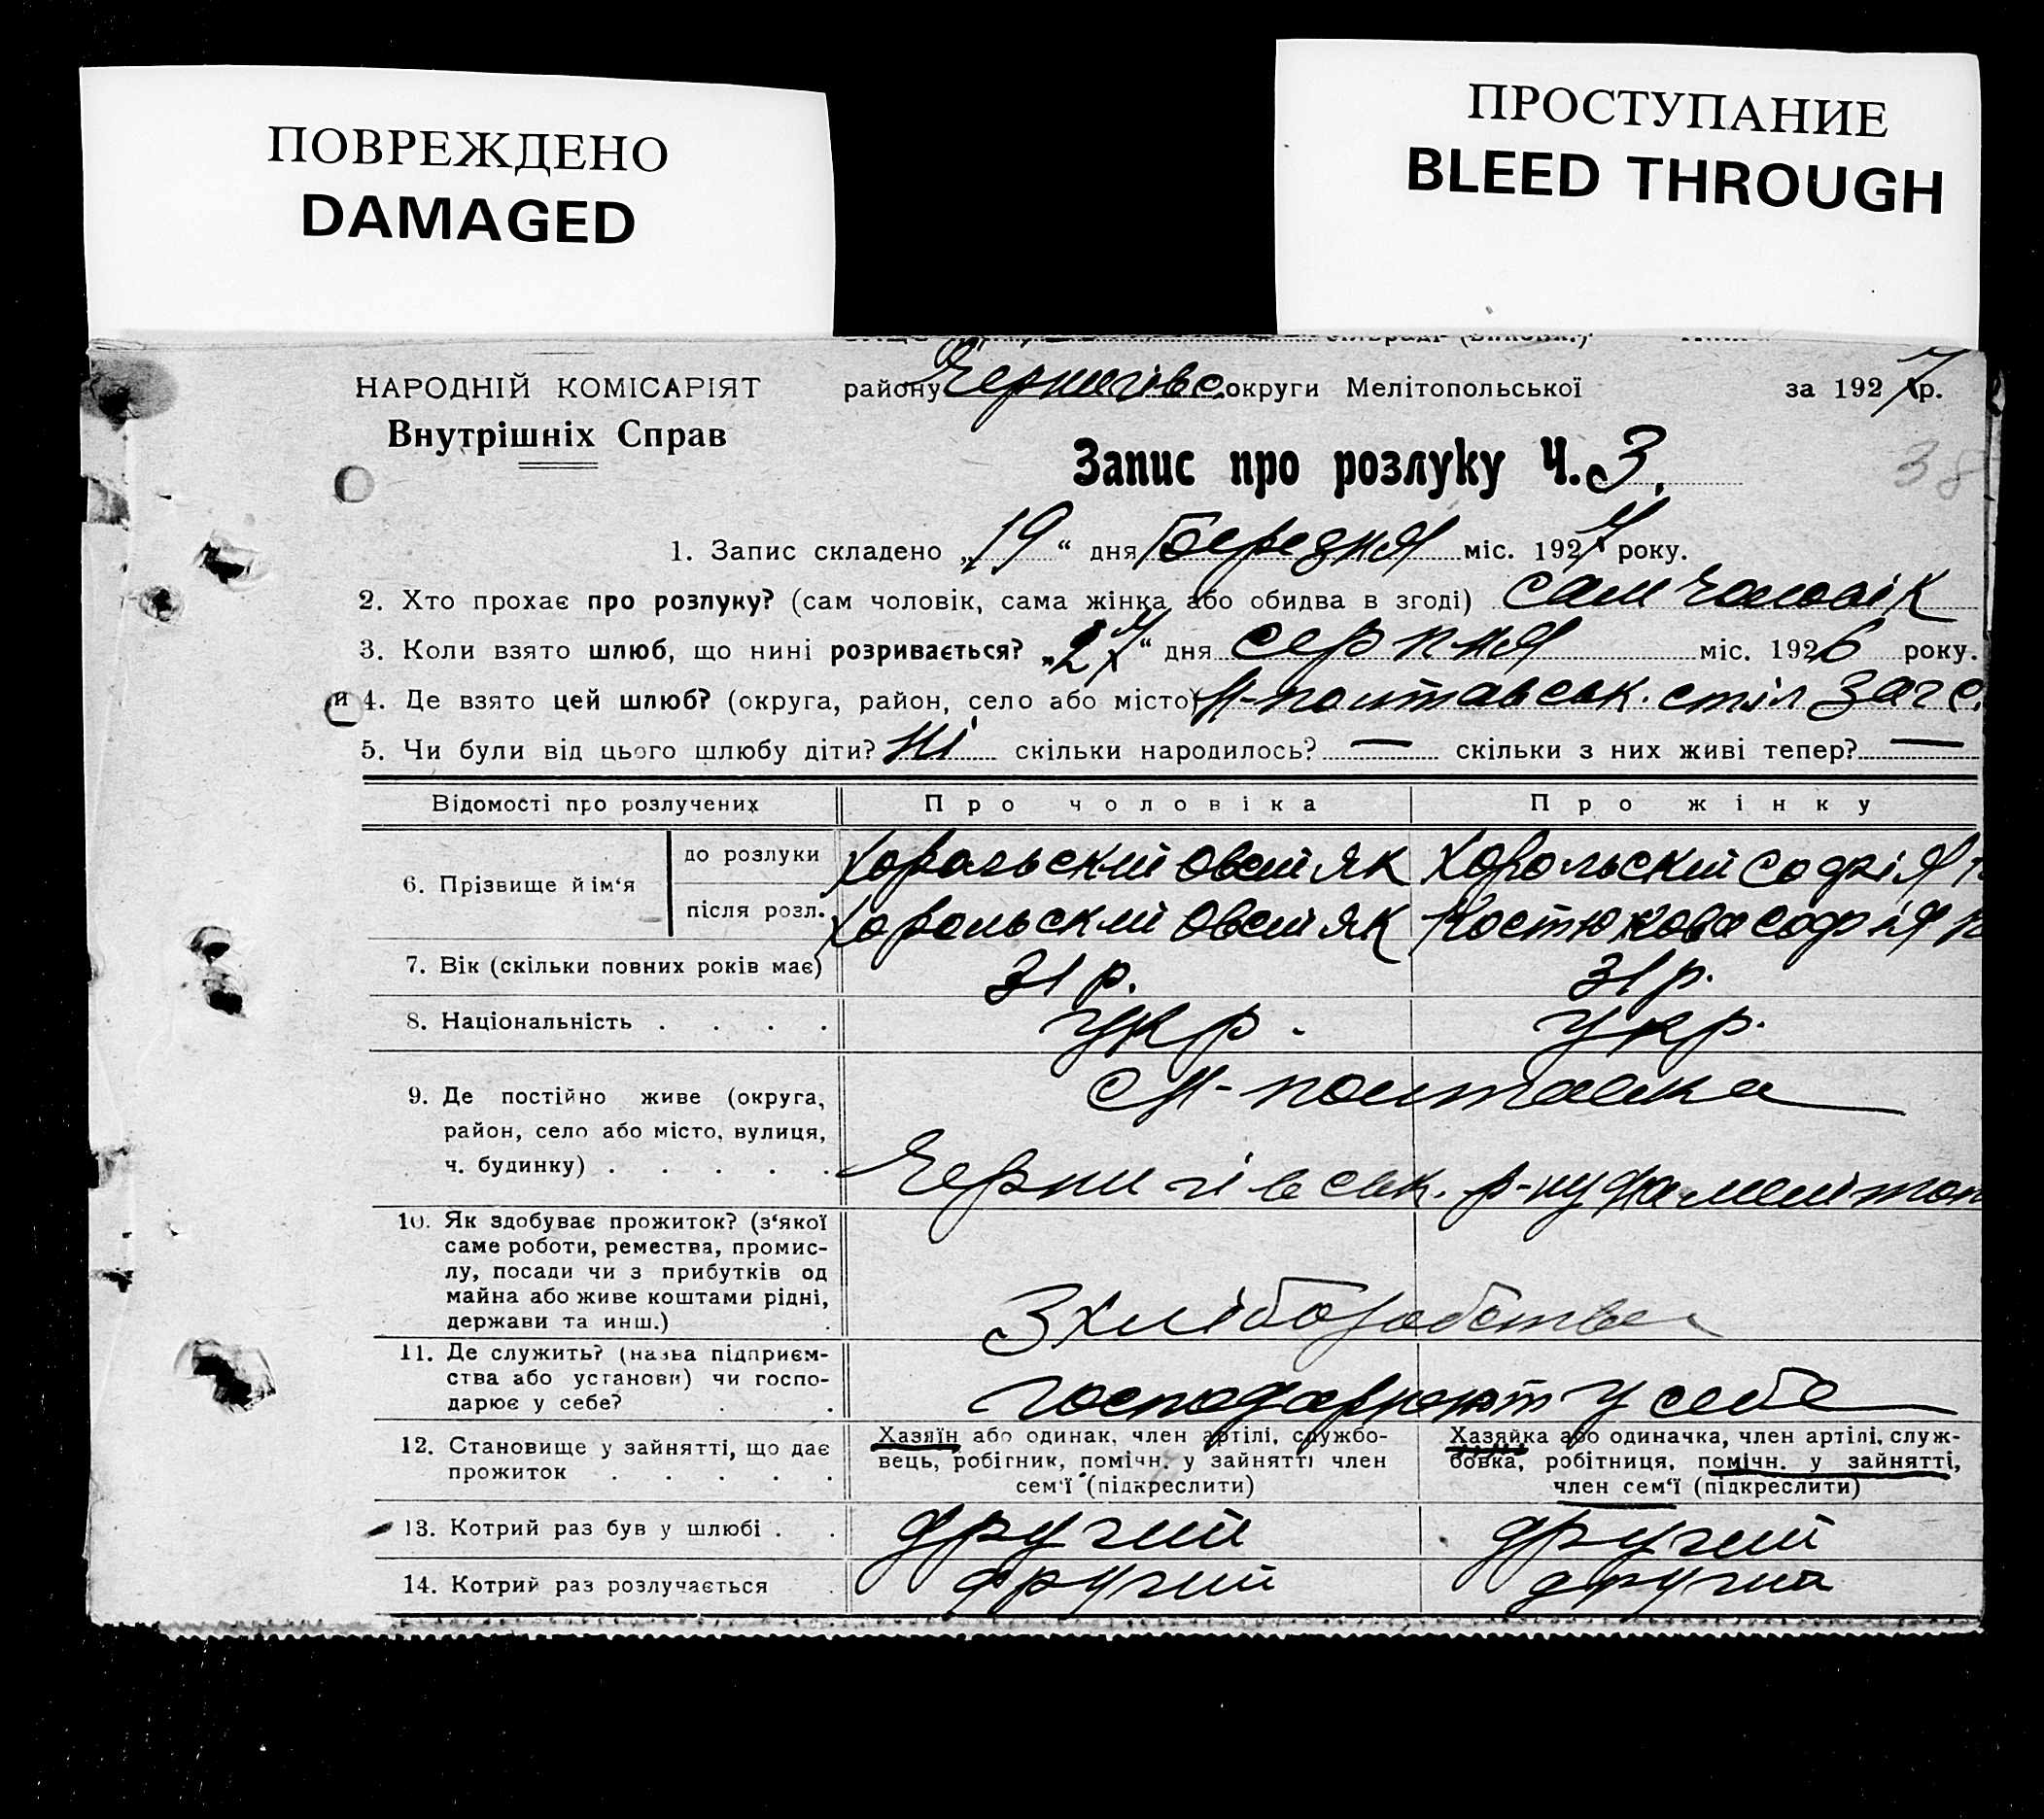 ПОВРЕЖДЕНО
DAMAGED
ПРОСТУПАНИЕ
BLEED THROUGH
НАРОДНІЙ КОМІСАРІЯТ
Внутрішніх Справ
району Чернигівс. округи Мелітопольської за 1927 р.
Запис про розлуку Ч. 3.
38
1. Запис складено „19“ дня Березня міс. 1927 року.
2. Хто прохає про розлуку? (сам чоловік, сама жінка або обидва в згоді) сам чоловік
3. Коли взято шлюб, що нині розривається? „27“ дня серпня міс. 1926 року.
и 4. Де взято цей шлюб? (округа, район, село або місто) М-полтавськ. стіл загс.
5. Чи були від цього шлюбу діти? ні скільки народилось? — скільки з них живі тепер? —
Відомості про розлучених Про чоловіка Про жінку
6. Прізвище й ім‘я
до розлуки Хорольский Овсій Як Хорольский Софія
після розл. Хорольский Овсій Як Костюкова Софія
7. Вік (скільки повних років має) 31 р. 31 р.
8. Національність . . . . укр. укр.
9. Де постійно живе (округа, район, село або місто, вулиця, ч. будинку) . . . . .
с М-полтавка
Чернигівськ. р-ну на мелітоп
10. Як здобуває прожиток? (з‘якої саме роботи, ремества, промислу, посади чи з прибутків од майна або живе коштами рідні, держави та инш.)
З хліборобства
11. Де служить? (назва підприємства або установи) чи господарює у себе? . .
господарюют у себе
12. Становище у зайнятті, що дає прожиток . . . . .
Хазяїн або одинак, член артілі, службовець, робігник, помічн. у зайнятті член сем‘ї (підкреслити)
Хазяйка або одиначка, член артілі, службовка, робітниця, помічн. у зайнятті, член сем‘ї (підкреслити)
13. Котрий раз був у шлюбі . . другий другий
14. Котрий раз розлучається . другий другий